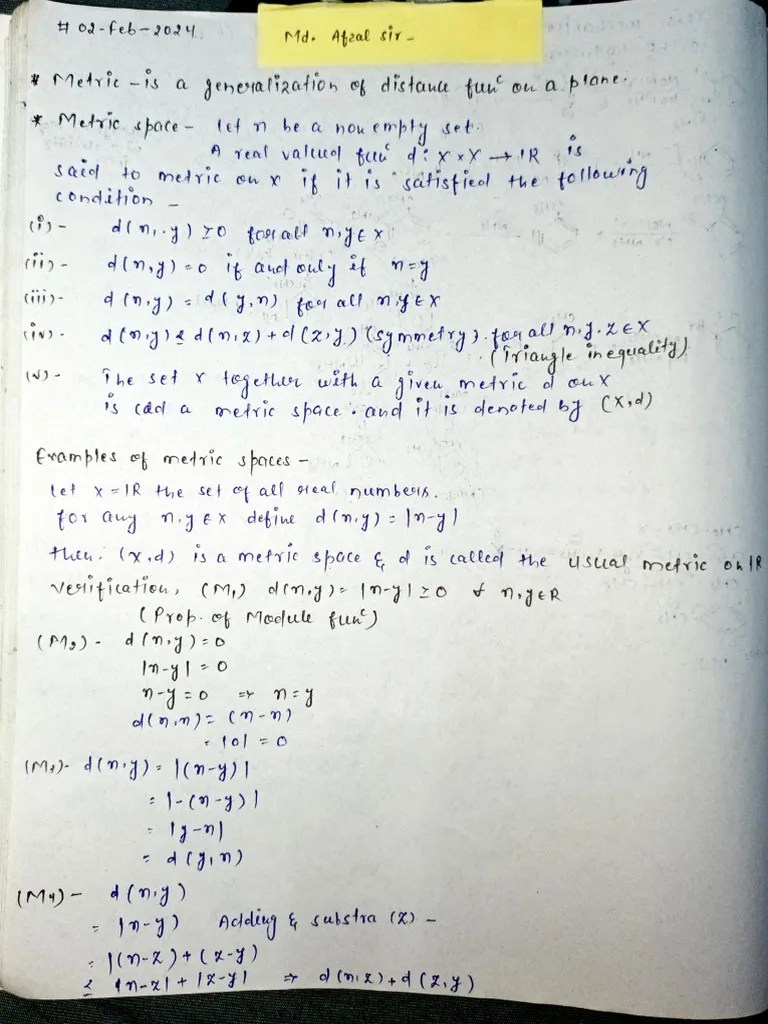 # 02-Feb-2024
Md. Afzal sir-
* Metric - is a generalization of distance funᶜ on a plane.
* Metric space - let x be a non empty set.
A real valued funᶜ d: X×X → IR is
said to metric on x if it is satisfied the following
condition -
(i)- d(x,y) ≥ 0 for all x,y ∈ X
(ii)- d(x,y) = 0 if and only if x=y
(iii)- d(x,y) = d(y,x) for all x,y ∈ X
(iv)- d(x,y) ≤ d(x,z) + d(z,y) (symmetry). for all x,y,z ∈ X
(Triangle inequality)
(v)- The set x together with a given metric d on x
is cad a metric space. and it is denoted by (X,d)
Examples of metric spaces -
let x = IR the set of all real numbers.
for any x,y ∈ X define d(x,y) = |x-y|
then, (x,d) is a metric space & d is called the usual metric on IR
verification, (M₁) d(x,y) = |x-y| ≥ 0 ∀ x,y ∈ R
(Prop. of Module funᶜ)
(M₂)- d(x,y) = 0
|x-y| = 0
x-y = 0 ⇒ x=y
d(x,x) = (x-x)
= |0| = 0
(M₃)- d(x,y) = |(x-y)|
= |-(x-y)|
= |y-x|
= d(y,x)
(M₄)- d(x,y)
= |x-y) Adding & substra (z) -
= |(x-z)+(z-y)
≤ |x-z| + |z-y| ⇒ d(x,z)+d(z,y)